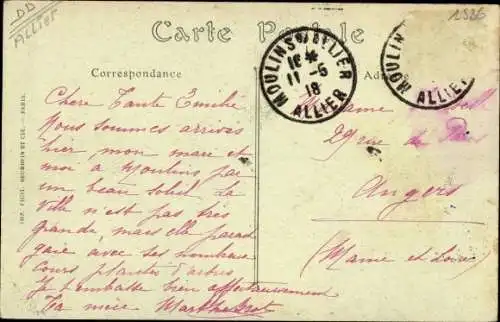 DD
Allier
1526
Carte Postale
Correspondance
Chère Tante Emilie
Nous sommes arrivés
hier, mon mari et
moi à Moulins par
un beau soleil. La
ville n'est pas très
grande, mais elle parait
gaie avec ses nombreux
cours plantés d'arbres
Je t'embrasse bien affectueusement
Ta nièce Marthe
MOULINS S/ ALLIER
11 -5
18
ALLIER
MOULIN
ALLIER
Adr
Madame
29 rue de
Angers
(Maine et Loire)